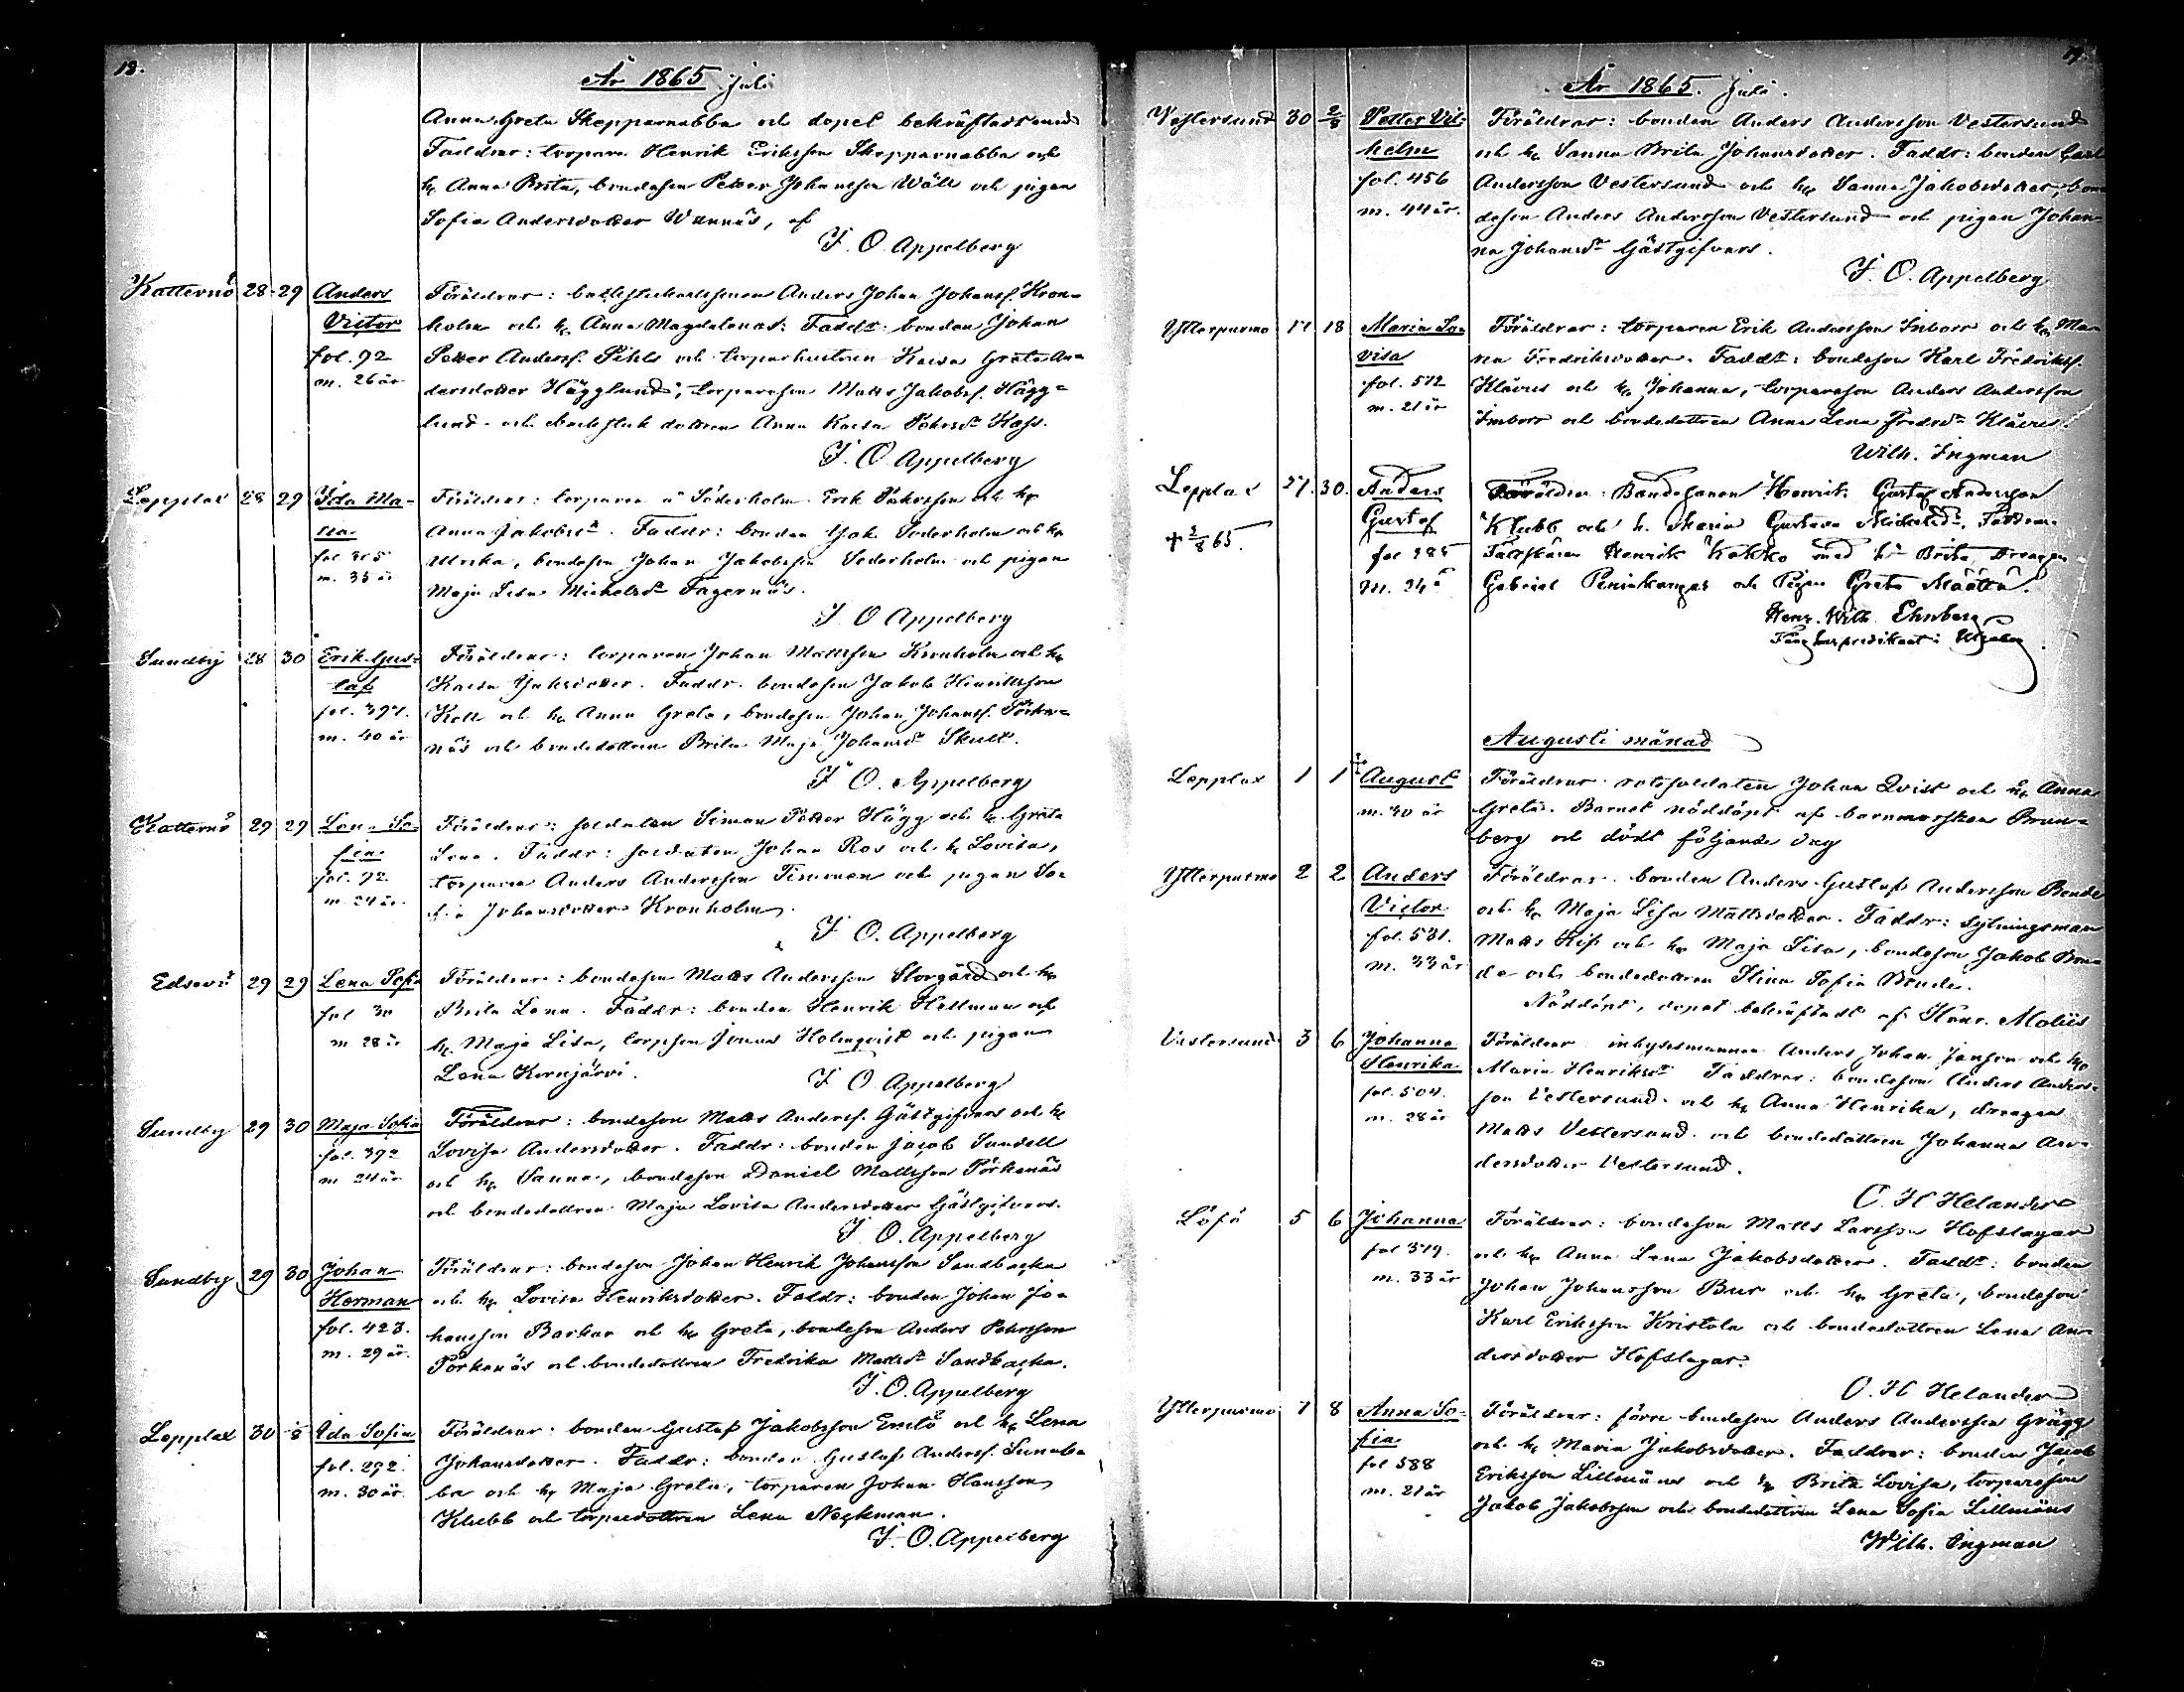 18.
År 1865 Juli
Anna Greta Skepparnabba och dopet bekräftadt med
Faddrar: torparen Henrik Eriksson Skepparnabba och
h. Anna Brita, bondeson Petter Johansson Wäll och pigan
Sofia Andersdotter Wännäs, af
F. O. Appelberg
Katternö 28 29 Anders Föräldrar: Anders Johan Johanss. Kron-
Victor holm och h. Anna Magdalenas: Fadd: bonden Johan
fol. 92 Petter Anderss. Pihls och torparhustrun Kaisa Greta An-
m. 26 år dersdotter Hägglund, torpareson Matts Jakobss. Hägg-
lund och dottren Anna Kaisa Kass.
F. O. Appelberg
Lepplax 28 29 Ida Ma- Föräldrar: torparen å Söderholm Erik och h.
ria Anna Jakobsdr. Faddr: bonden Jak. Söderholm och h.
fol 305 Ulrika, bondeson Johan Jakobsson Söderholm och pigan
m. 35 år Maja Lisa Michelsdr Fagernäs.
F. O. Appelberg
Sundby 28 30 Erik Gus- Föräldrar: torparen Johan Mattsson Kronholm och h.
taf Kaisa. Faddr. bondeson Jakob Henriksson
fol. 397. Kott och h. Anna Greta, bondeson Johan Johanss. Pörke-
m. 40 år näs och bondedottren Brita Maja Johansdr Skult.
F. O. Appelberg
Katternö 29 29 Lena So- Föräldrar: soldaten Simon Petter Hägg och h. Greta
fia Lena. Faddr: soldaten Johan Ros och h. Lovisa,
fol. 92 torparen Anders Andersson Timonen och pigan So-
m. 24 år fia Johansdotter Kronholm.
F. O. Appelberg
Edsevö 29 29 Lena Sofia Föräldrar: bondeson Matts Andersson Storgård och h.
fol 30 Brita Lena. Faddr: bonden Henrik Hellman och
m 28 år h. Maja Lisa, torpson Jonas Holmqvist och pigan
Lena Kernjärvi.
F. O. Appelberg
Sundby 29 30 Maja Sofia Föräldrar: bondeson Matts Anderss. Gästgifvars och h.
fol. 392 Lovisa Andersdotter. Faddr: bonden Jacob Sundell
m 24 år och h. Sanna, bondeson Daniel Mattsson Pörkenäs
och bondedottren Maja Lovisa Andersdotter Gästgifvars.
F. O. Appelberg
Sundby 29 30 Johan Föräldrar: bondeson Johan Henrik Johansson Sandbacka
Herman och h. Lovisa Henriksdotter. Faddr: bonden Johan Jo-
fol. 423. hansson Backar och h. Greta, bondeson Anders Pehrsson
m. 29 år. Pörkenäs och bondedottren Fredrika Mattsdr Sandbacka.
F. O. Appelberg
Lepplax 30 Ida Sofia Föräldrar: bonden Gustaf Jakobsson Emlö och h. Lena
fol. 292. Johansdotter. Faddr: bonden Gustaf Anderss. Sunnba-
m. 30 år. och h. Maja Greta, torparen Johan Hansson
Klubb och torpardottren Lena Neckman.
F. O. Appelberg
19.
År 1865. Juli.
Vestersund 30 2/8 Petter Vil- Föräldrar: bonden Anders Andersson Vestersund
helm och h. Sanna Brita Johansdotter. Faddr: bonden Carl
fol. 456 Andersson Vestersund och h. Sanna Jakobsdotter, bon-
m. 44 år. deson Anders Andersson Vestersund och pigan Johan-
na Johansdr Gästgifvars.
F. O. Appelberg
Ytterpurmo 17 18 Maria Lo- Föräldrar: torparen Erik Andersson Imborr och h. Ma-
visa ria Fredriksdotter. Fadd: bondeson Karl Fredrikss.
fol. 572 Klåvus och h. Johanna, torpareson Anders Andersson
m. 21 år Imborr och bondedottren Anna Lena Fredrsdr Klåvus.
Wilh. Ingman
Lepplax 27. 30. Anders Föräldrar: Bondesonen Henrik Gustaf Andersson
Gustaf Klubb och h. Maria Gustava. Faddrar.
† 2/8 65. fol 285 Henrik Kokko med h. Brita, Drängen
m. 34 år Gabriel och Pigan Greta Määttä.
Henr. Wilh. Ehnberg
Augusti månad
Lepplax 1 1 August Föräldrar rotesoldaten Johan Qvist och h. Anna
m. 30 år Greta. Barnet nöddöpt af barnmorskan Brun-
berg och dödt följande dag
Ytterpurmo 2 2 Anders Föräldrar. bonden Anders Gustaf Andersson Bonde
Victor och h. Maja Lisa Mattsdotter. Faddr: sytningsman
fol. 531. Matts Kif och h. Maja Lisa, bondeson Jakob Bon-
m. 33 år de och bondedottren Stina Sofia Bonde.
Nöddöpt, dopet bekräftadt af Henr. Moliis
Vestersund 3 6 Johanna Föräldrar inhysesmannen Anders Johan Jansson och h.
Henrika Maria Henriksdr Faddrar: bondeson Anders Anders-
fol. 504. son Vestersund och h. Anna Henrika, drängen
m. 28 år Matts Vestersund och bondedottren Johanna An-
dersdotter Vestersund.
O. H. Helander
Löfö 5 6 Johanna Föräldrar: bondeson Matts Larsson Hofslagar
fol 379. och h. Anna Lena Jakobsdotter. Fadd: bonden
m. 33 år Johan Johansson Bur och h. Greta, bondeson
Karl Eriksson Kristola och bondedottren Lena An-
dersdotter Hofslagar.
O. H. Helander
Ytterpurmo 7 8 Anna So- Föräldrar: förre bondeson Anders Andersson Grägg
fia och h. Maria Jakobsdotter. Faddrar: bonden Jacob
fol 588 Eriksson Lillmåns och h. Brita Lovisa, torpareson
m. 21 år Jakob Jakobsson och bondedottren Lena Sofia Lillmåns
Wilh. Ingman